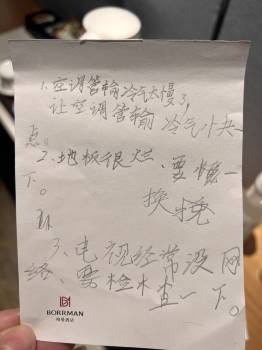 1. 空调管输冷气太慢了,
让空调管输冷气快一
点。
2. 地板很烂、要
下。
3、电视经常没网
络、需检查一下。
BORRMAN